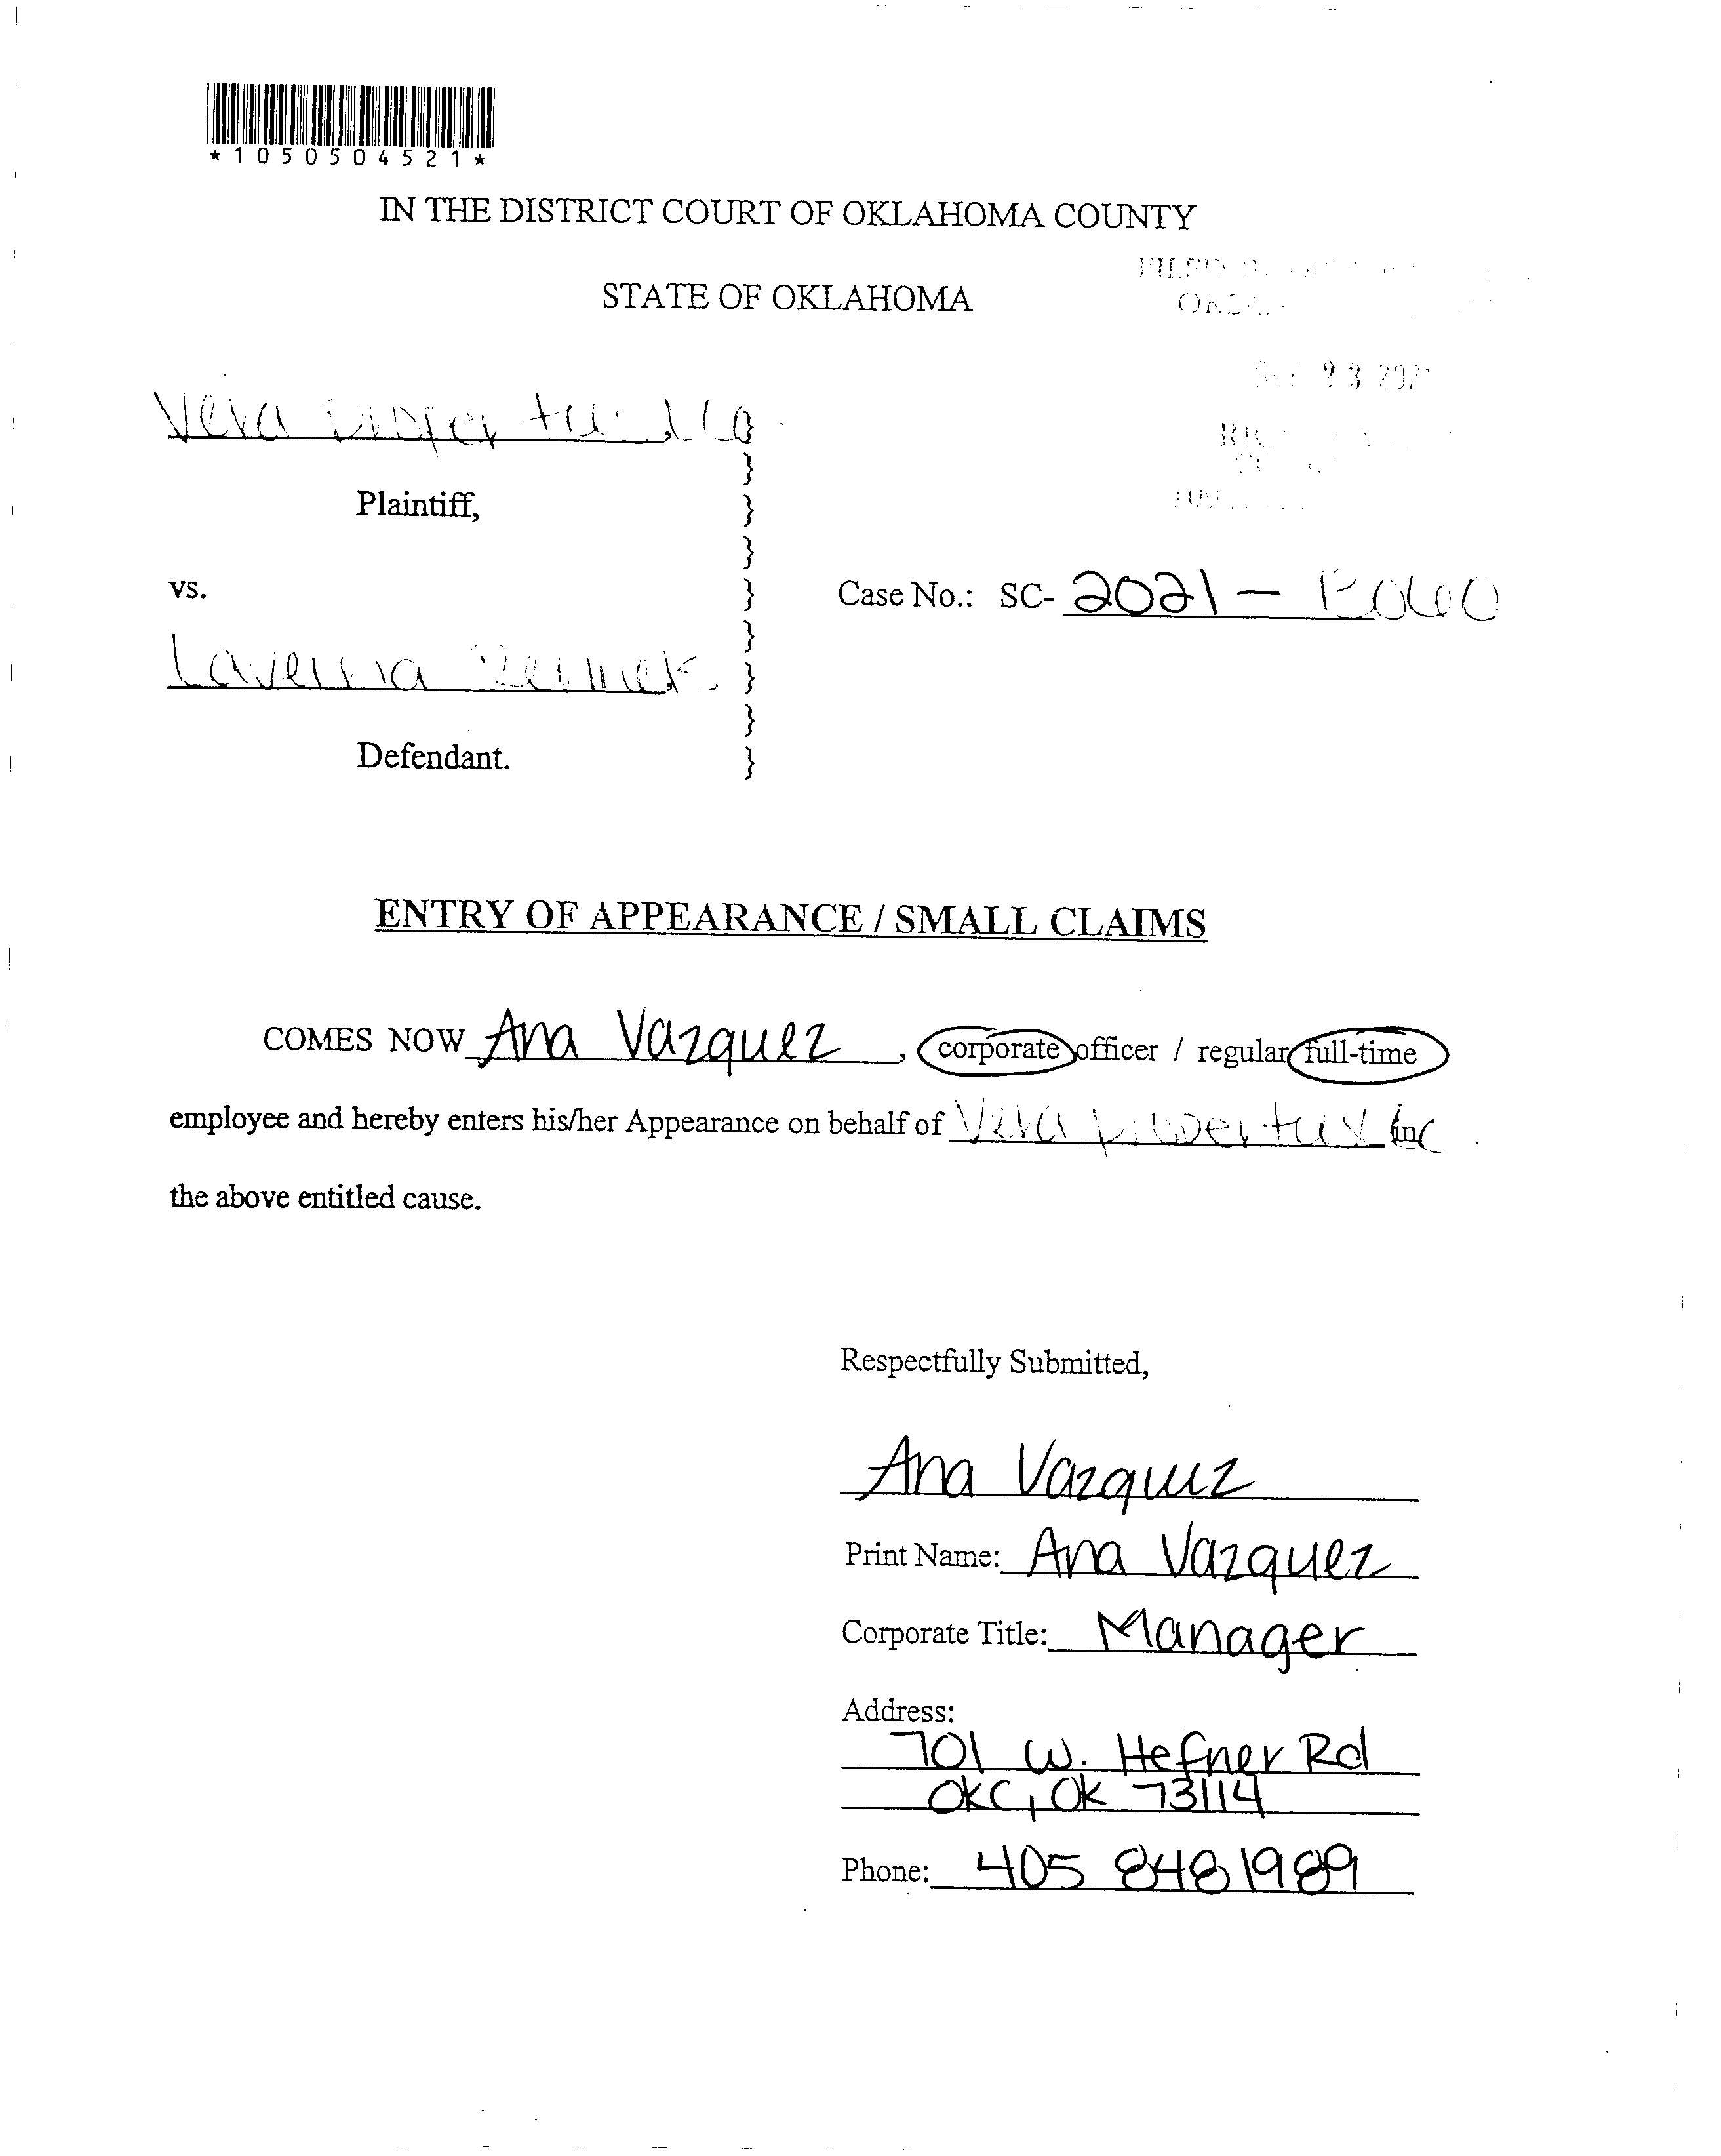 *1050504521*
IN THE DISTRICT COURT OF OKLAHOMA COUNTY
STATE OF OKLAHOMA
Vera
Plaintiff,
vs.
Case No.: SC- 2021 -
Defendant.
ENTRY OF APPEARANCE / SMALL CLAIMS
COMES NOW Ana Vazquez, corporate officer / regular full-time
employee and hereby enters his/her Appearance on behalf of Vera properties inc
the above entitled cause.
Respectfully Submitted,
Ana Vazquez
Print Name: Ana Vazquez
Corporate Title: Manager
Address:
701 W. Hefner Rd
OKC, OK 73114
Phone: 405 848 1989